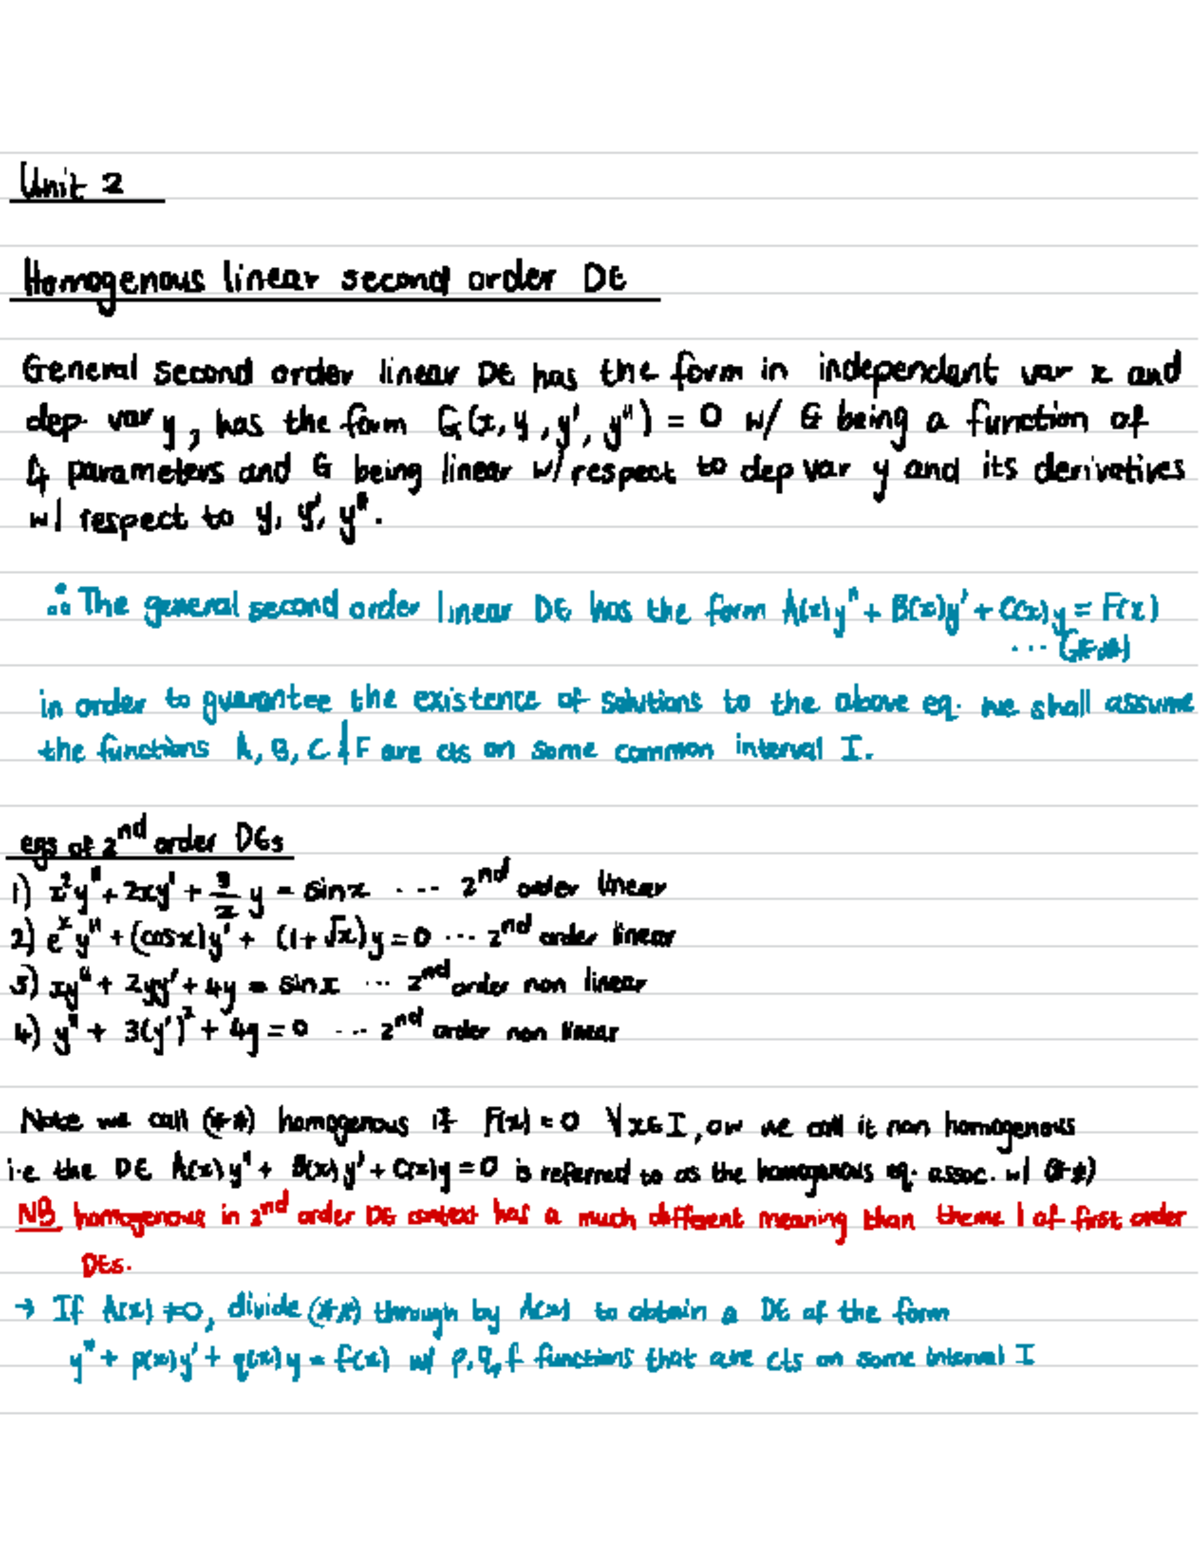 Unit 2
Homogenous linear second order DE
General second order linear DE has the form in independent var x and
dep var y, has the form G(x, y, y', y'') = 0 w/ G being a function of
4 parameters and G being linear w/ respect to dep var y and its derivatives
w/ respect to y, y', y''.
∴ The general second order linear DE has the form A(x)y'' + B(x)y' + C(x)y = F(x)
...
in order to guarantee the existence of solutions to the above eq. we shall assume
the functions A, B, C & F are cts on some common interval I.
egs of 2nd order DEs
1) x²y'' + 2xy' + 3/x y = sinx ... 2nd order linear
2) eˣy'' + (cosx)y' + (1+√x)y = 0 ... 2nd order linear
3) xy'' + 2yy' + 4y = sinx ... 2nd order non linear
4) y'' + 3(y')² + 4y = 0 ... 2nd order non linear
Note we call (**) homogenous if F(x) = 0 ∀x∈I, ow we call it non homogenous
i.e the DE A(x)y'' + B(x)y' + C(x)y = 0 is referred to as the homogenous eq. assoc. w/ (**)
NB homogenous in 2nd order DE context has a much different meaning than theme 1 of first order
DEs.
→ If A(x) ≠ 0, divide (**) through by A(x) to obtain a DE of the form
y'' + p(x)y' + q(x)y = f(x) w/ p, q, f functions that are cts on some interval I